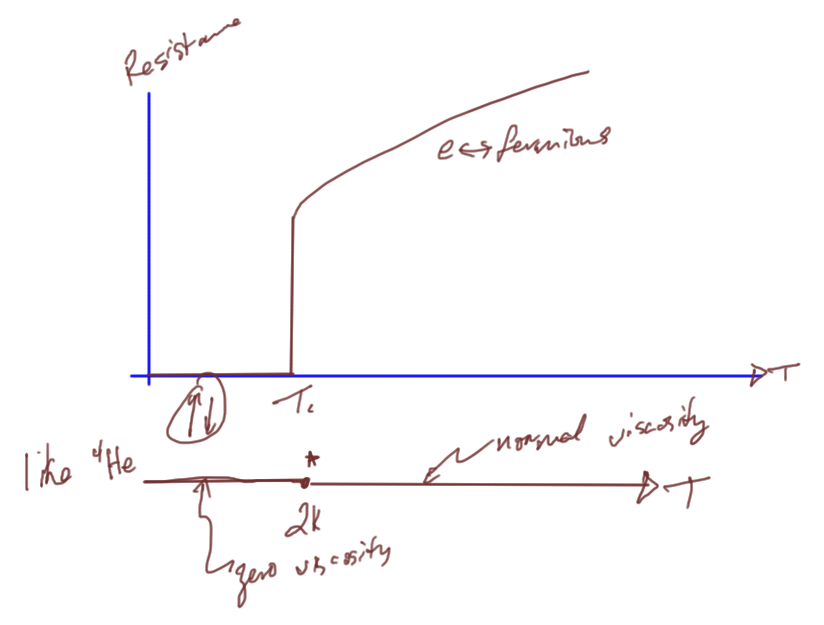 Resistance
e ↔ fermions
T
Tc
↑↓
like ⁴He
*
normal viscosity
T
2K
zero viscosity